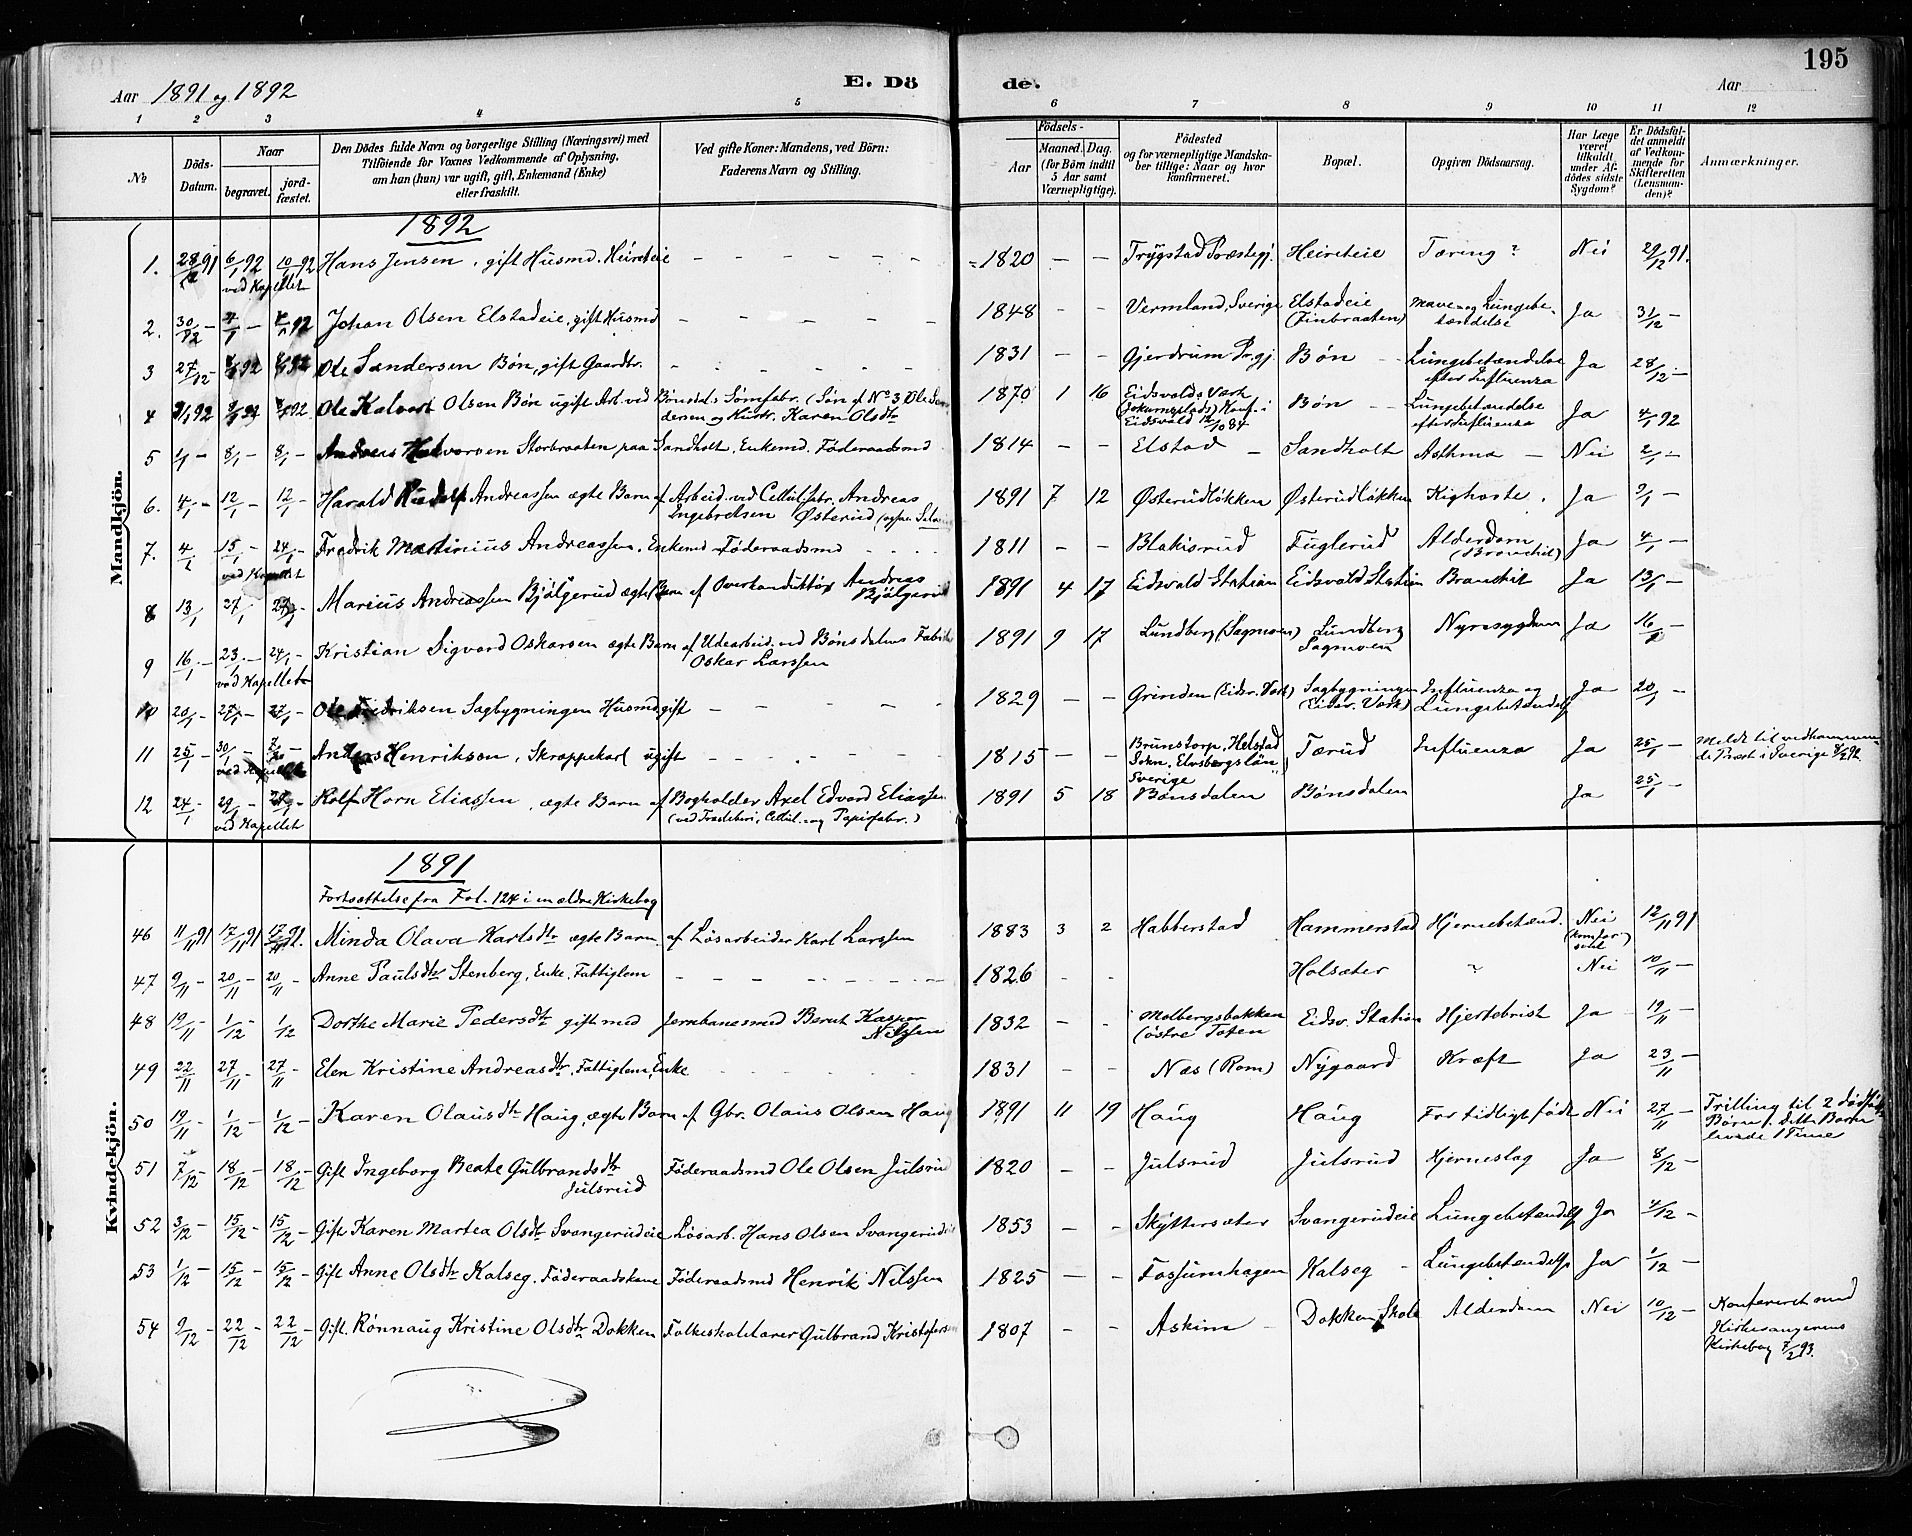 Aar 1891 og 1892
E. Dö
de.
Aar
195
1 2 3 4 5 6 7 8 9 10 11 12
No
Döds-Datum.
Naar
begravet.
jord-fæstet.
Den Dödes fulde Navn og borgerlige Stilling (Næringsvei) med
Tilföiende for Voxnes Vedkommende af Oplysning,
om han (hun) var ugift, gift, Enkemand (Enke)
eller fraskilt.
Ved gifte Koner: Mandens, ved Börn:
Faderens Navn og Stilling.
Födsels-
Aar
Maaned. Dag.
(for Börn indtil
5 Aar samt
Værnepligtige).
Födested
og for værnepligtige Mandska-
ber tillige: Naar og hvor
konfirmeret.
Bopæl.
Opgiven Dödsaarsag.
Har Læge
været
tilkaldt
under Af-
dödes sidste
Sygdom?
Er Dödsfal-
det anmeldt
af Vedkom-
mende for
Skifteretten
(Lensman-
den)?
Anmærkninger.
Mandkjön.
1892
1. 28/12 91 6/1 92 10/1 92 Hans Jensen, gift Husmd. Heireteie - - - - - - 1820 - - Trygstad Præstegj. Heireteie Tæring? Nei 29/12 91.
ved Kapellet
2. 30/12 - Johan Olsen Elstadeie, gift Husmd - - - - - 1848 - - Vermland, Sverige Elstadeie Mave og Lungebe- Ja 31/12 -
(Finbraaten) tændelse
3 27/12 - Ole Sandersen Bön, gift Gaardbr. - - - - - - 1831 - - Gjerdrum Pr.gj. Bön - - Lungebetændelse Ja 28/12 -
efter Influenza
4 Ole Halvart Olsen Bön ugift Arb. ved Bönsdals Tömfabr. (Sön af No 3 Ole San- 1870 1 16 Eidsvolds Værk Bön - - Lungebetændelse Ja 4/1 92
dersen og Hustr. Karen Olsdtr efter Influenza
Eidsvold
5 8/1 - 8/1 - Andreas Halvorsen Storbraaten paa Sandholt, Enkemd. Föderaadsmd 1814 - - Elstad - Sandholt Asthma - Nei 2/1 -
6. 4/1 - 12/1 - 12/1 - Harald Rudolf Andreassen ægte Barn af Arbeid. ved Cellulfabr. Andreas 1891 7 12 Österudlökken Österudlökken Kighoste. Ja 9/1 -
Engebretsen Österud
7. 15/1 - 24/1 - Fredrik Martinius Andreassen, Enkemd Föderaadsmd - - - - 1811 - - Blakisrud Fuglerud Alderdom Ja 4/1 -
ved Kapellet (Bronchit)
8 13/1 27/1 Marius Andreassen Bjölgerud ægte Barn af Overkonduktör Andreas 1891 4 17 Eidsvold Station Eidsvold Station Bronchit Ja 13/1 -
Bjölgerud
9 16/1 - 23/1 - 24/1 - Kristian Sigvard Oskarsen ægte Barn af Udearbeid. ved Bönsdalens Fabrik 1891 9 17 Lundberg (Sagmoen) Lundberg Nyresygdom Ja 16/1 -
ved Kapellet Oskar Larssen Sagmoen
10 20/1 - 27/1 - 27/1 - Ole Fredriksen Sagbygningen Husmd, gift - - - - - 1829 - - Grinden (Eidsv. Værk) Sagbygningen Influenza og Ja 20/1 -
(Eidsv. Værk) Lungebetændelse
11 25/1 - 30/1 - Anders Henriksson, Skrappekarl ugift - - - - - 1815 - - Brunstorp, Helstad Tærud Influenza Ja 25/1 - Meldt til vedkommen-
ved Kapellet Sokn. Elfsborgs län, de Præst i Sverige
Sverige
12 24/1 - 29/1 - Rolf Horn Eliassen, ægte Barn af Bogholder Axel Edvard Eliassen 1891 5 18 Bönsdalen Bönsdalen Ja 25/1 -
ved Kapellet (ved Træsliberi, Cellul. og Papirfabr.)
Kvindekjön.
1891
Fortsættelse fra Fol. 124 i en ældre Kirkebog
46 11/11 91 17/11 91 17/11 91. Minda Olava Karlsdtr ægte Barn af Lösarbeider Karl Larssen 1883 3 2 Habberstad Hammerstad Hjernebetænd. Nei 12/11 91
(kom for
sent)
47 9/11 - 20/11 - 20/11 - Anne Paulsdtr Stenberg, Enke, Fattiglem - - - - - 1826 - - Holsæter ~ Nei 10/11 -
48 19/11 - 1/12 - 1/12 Dorthe Marie Pedersdtr gift med Jernbanemnd Bernt Kasper 1832 - - Molbergsbakken Eidsv. Station Hjertebrist Ja - 19/11 -
Nilssen (östre Toten
49 22/11 27/11 - 27/11 - Elen Kristine Andreasdtr, Fattiglem, Enke - - - - - 1831 - - Næs (Rom) Nygaard Kræft Ja 23/11 -
50 19/11 - 1/12 - 1/12 - Karen Olausdtr Haug, ægte Barn af Gbr. Olaus Olsen Haug 1891 11 19 Haug Haug For tidligt född Nei 27/11 - Trilling til 2 dödfödte
Börn. Dette Barn
levede 1 Time
51 7/12 - 18/12 - 18/12 - Gift Ingeborg Beate Gulbrandsdtr Föderaadsmd Ole Olsen Julsrud 1820 - - Julsrud Julsrud Hjerneslag Ja 8/12 -
Julsrud
52 3/12 - 15/12 - 15/12 - Gift Karen Martea Olsdtr Svangerudeie Lösarb. Hans Olsen Svangerudeie 1853 - - Skyttersæter Svangerudeie Lungebetændelse Ja 4/12 -
53 1/12 - 15/12 - 15/12 - Gift Anne Olsdtr Kalseg, Föderaadskone Föderaadsmd Henrik Nilssen 1825 - - Fossumhagen Kalseg - Lungebetændelse Ja 1/12 -
54 9/12 - 22/12 - 22/12 - Gift. Rönnaug Kristine Olsdtr Dokken Folkeskolelærer Gulbrand Kristofersen 1807 - - Askim - Dokken Skole Alderdom Nei 10/12 - Konfereret med
Kirkesangerens
Kirkebog 7/2 93.